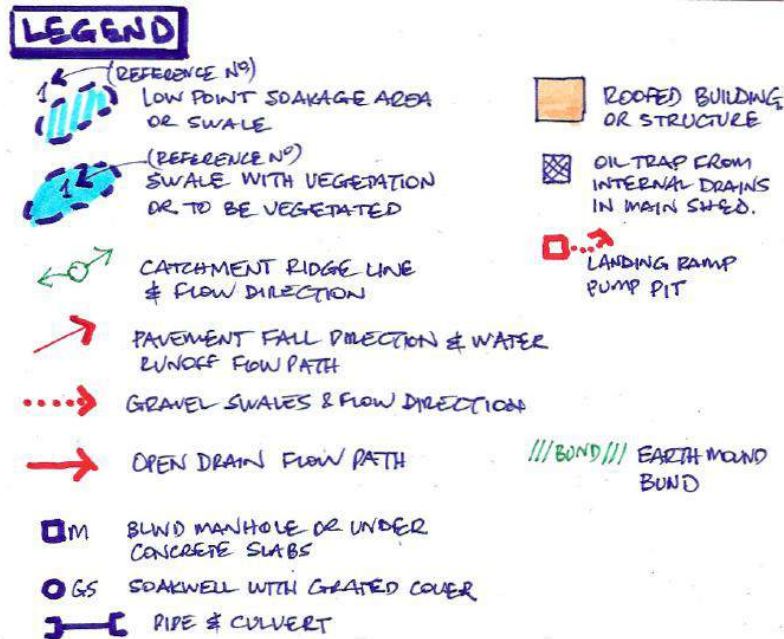 LEGEND
1 (REFERENCE Nº)
LOW POINT SOAKAGE AREA
OR SWALE
(REFERENCE Nº)
1 SWALE WITH VEGETATION
OR TO BE VEGETATED
CATCHMENT RIDGE LINE
& FLOW DIRECTION
PAVEMENT FALL DIRECTION & WATER
RUNOFF FLOW PATH
GRAVEL SWALES & FLOW DIRECTION
OPEN DRAIN FLOW PATH
M BLIND MANHOLE OR UNDER
CONCRETE SLABS
GS SOAKWELL WITH GRATED COVER
PIPE & CULVERT
ROOFED BUILDING
OR STRUCTURE
OIL TRAP FROM
INTERNAL DRAINS
IN MAIN SHED.
LANDING RAMP
PUMP PIT
///BUND/// EARTH MOUND
BUND